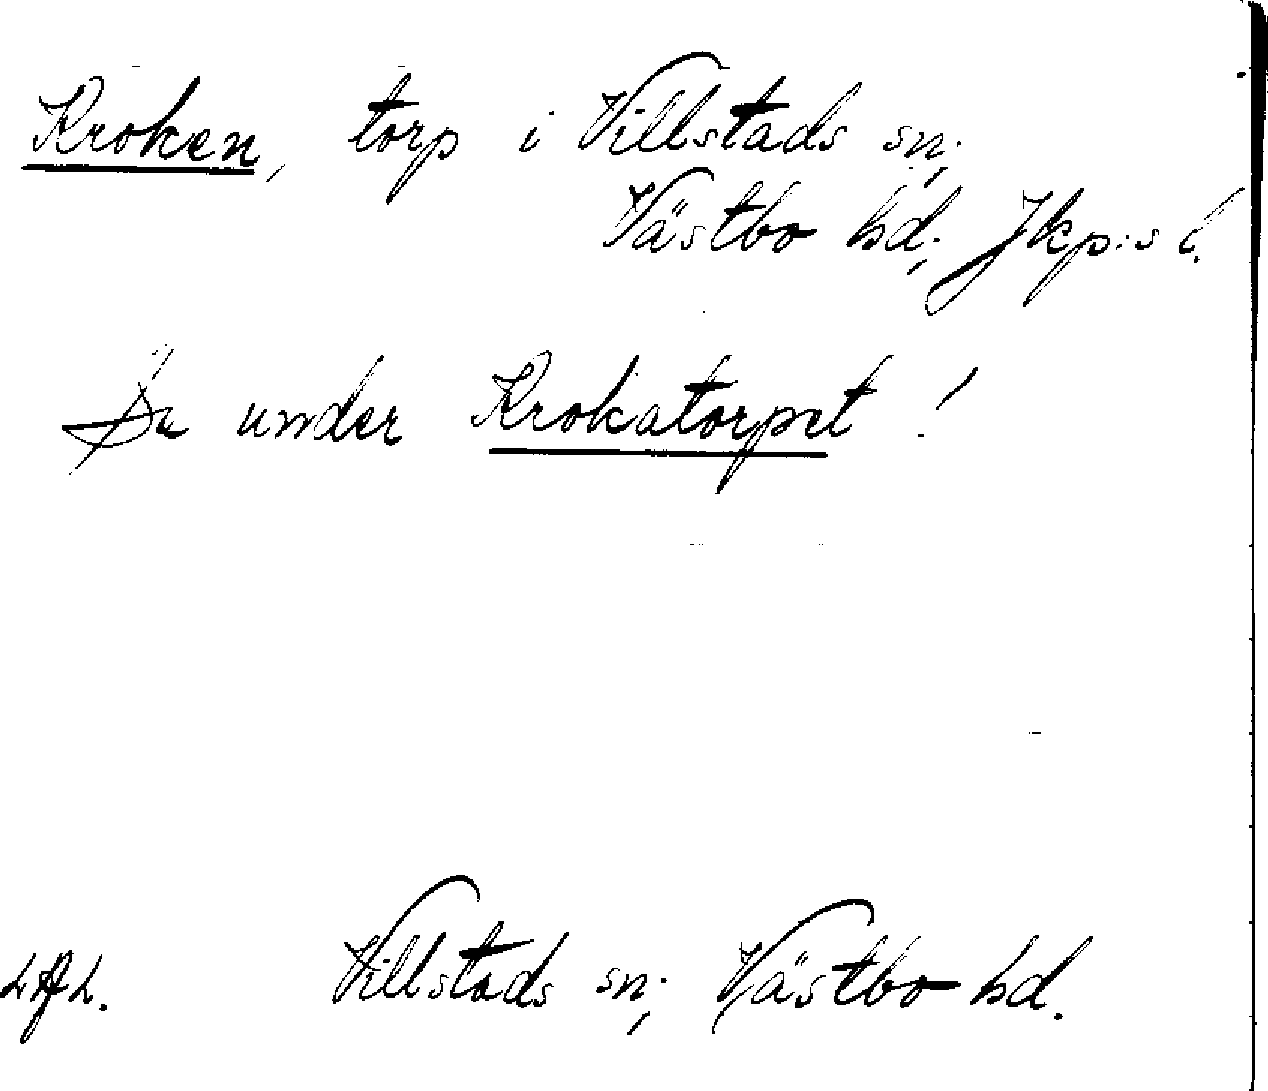 Kroken, torp i Villstads sn.,
Västbo hd., Jkp:s l.
Se under Krokatorpet!
Villstads sn., Västbo hd.